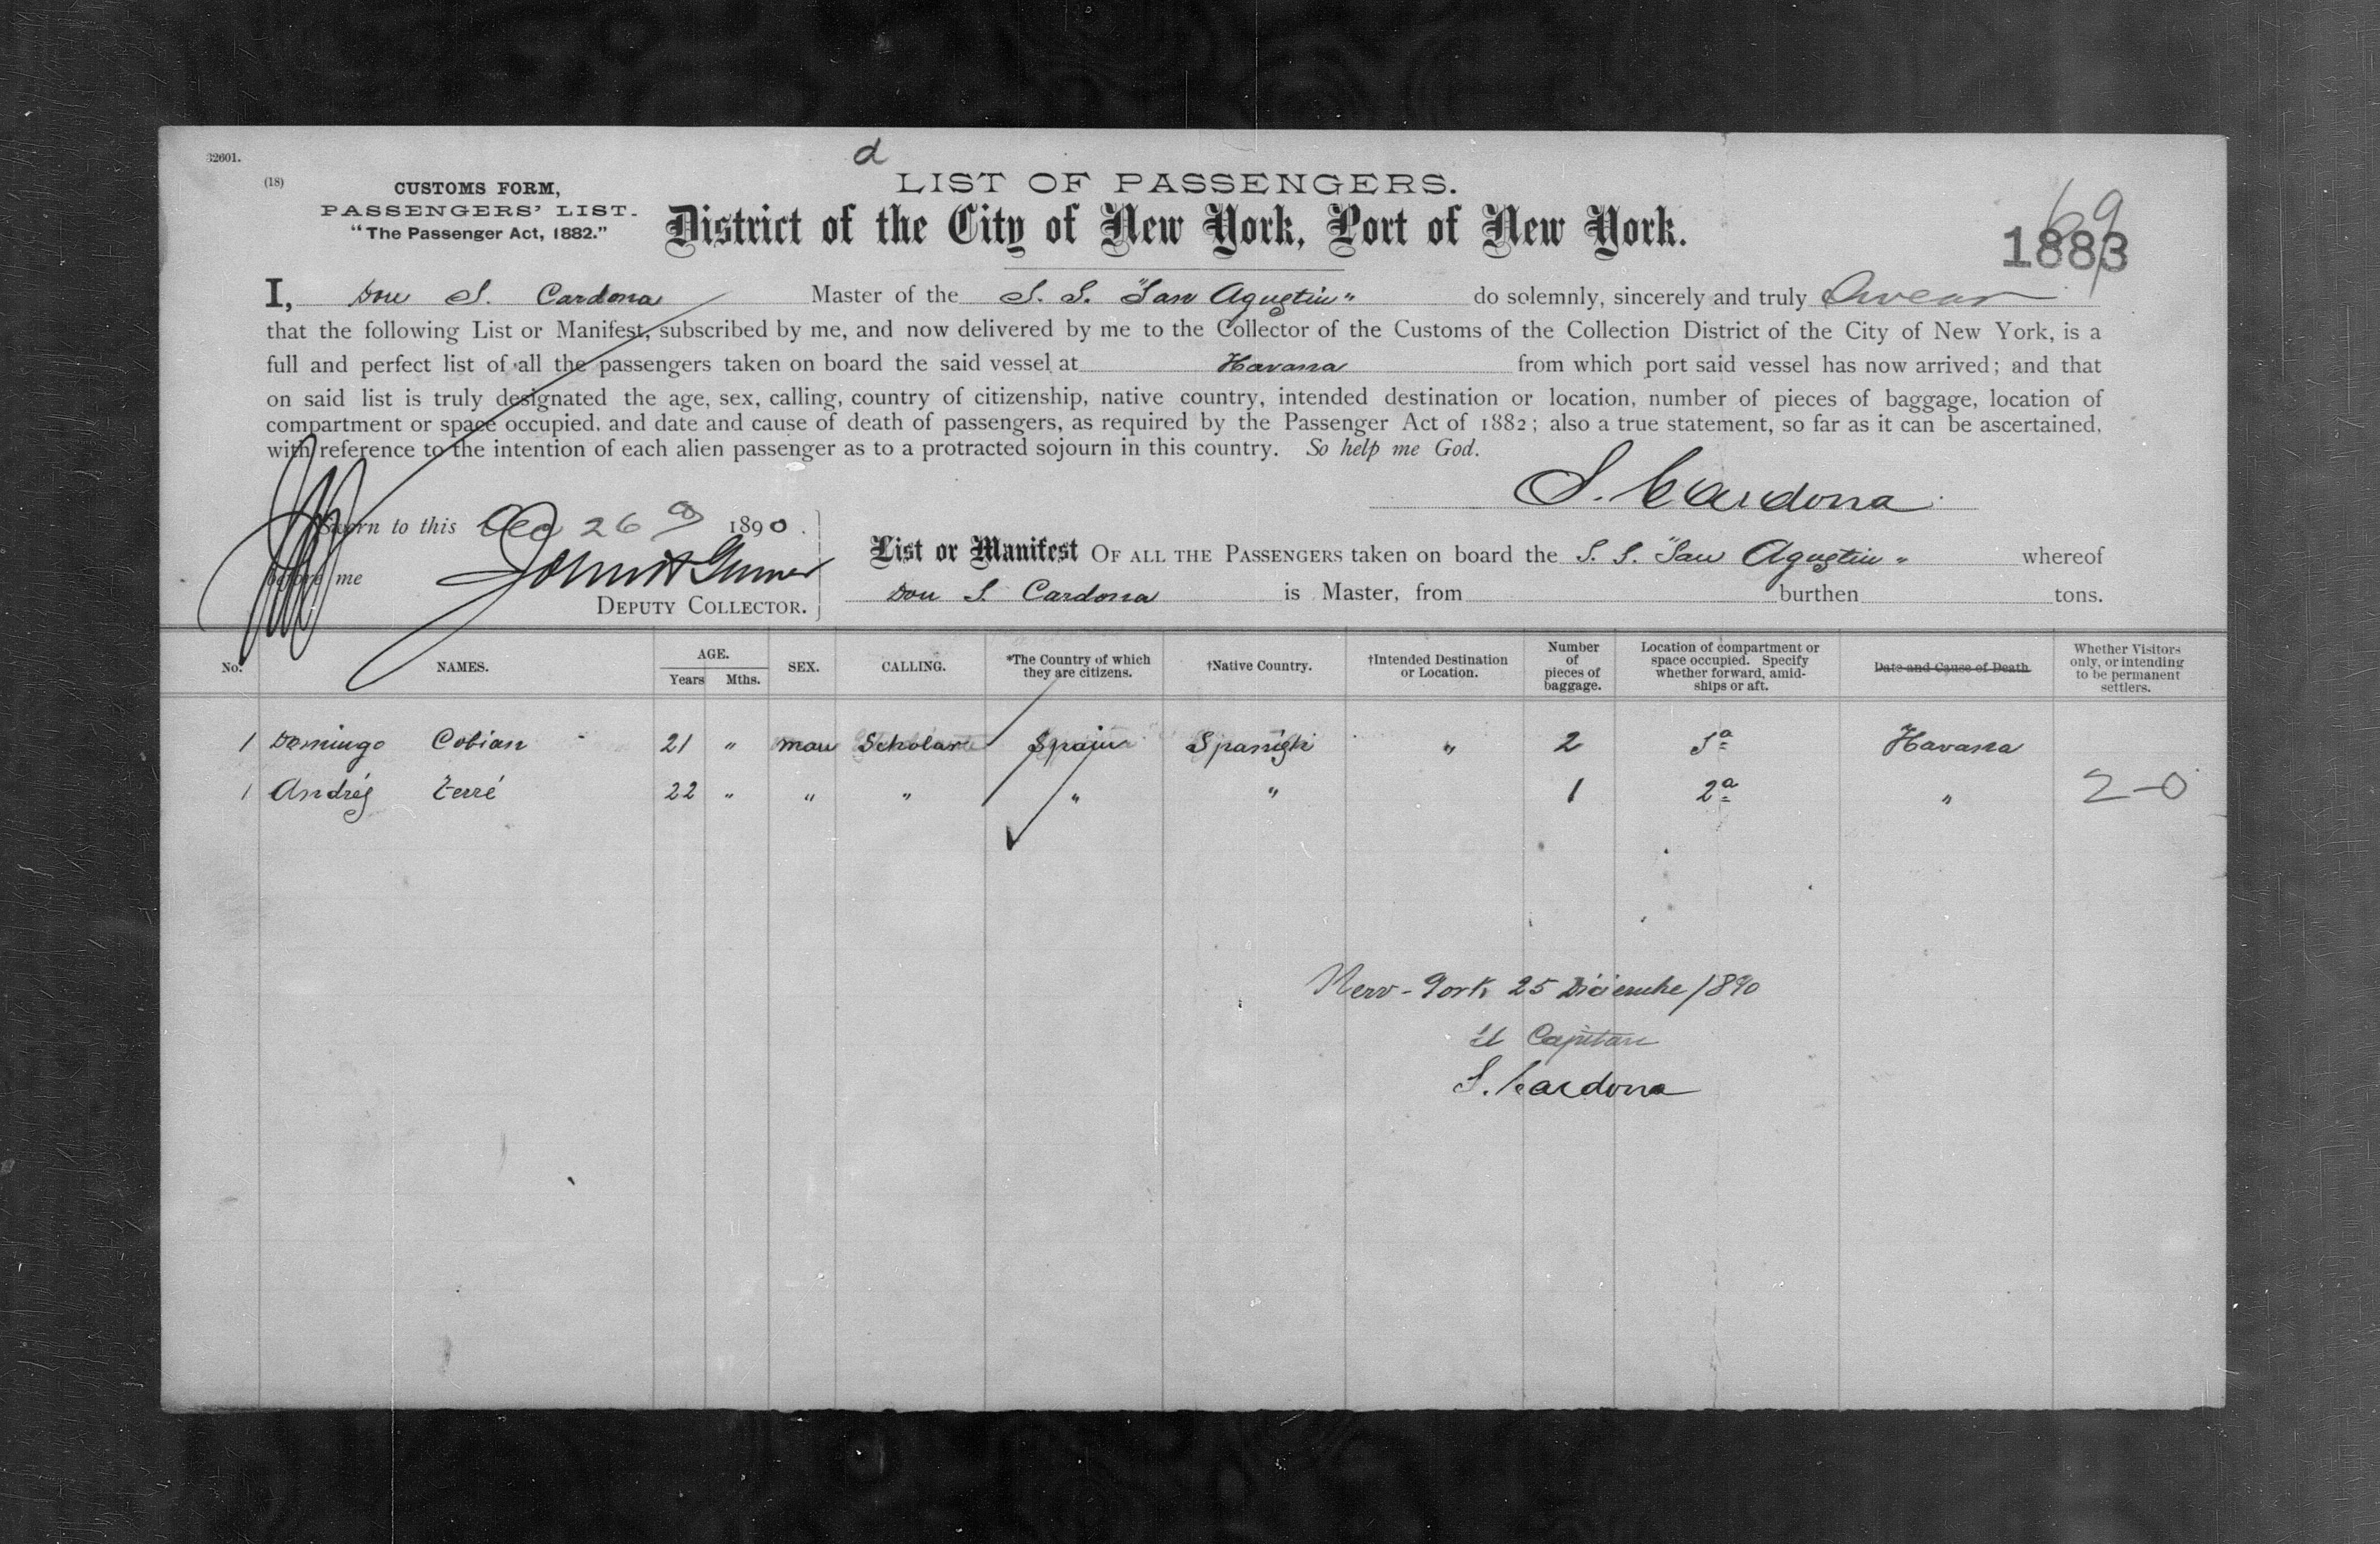 32601.
d
(18)
CUSTOMS FORM,
PASSENGERS' LIST.
"The Passenger Act, 1882."
LIST OF PASSENGERS.
District of the City of New York, Port of New York.
69
1883
I, Don S. Cardona Master of the S. S. "San Agustin" do solemnly, sincerely and truly Swear
that the following List or Manifest, subscribed by me, and now delivered by me to the Collector of the Customs of the Collection District of the City of New York, is a
full and perfect list of all the passengers taken on board the said vessel at Havana from which port said vessel has now arrived; and that
on said list is truly designated the age, sex, calling, country of citizenship, native country, intended destination or location, number of pieces of baggage, location of
compartment or space occupied, and date and cause of death of passengers, as required by the Passenger Act of 1882; also a true statement, so far as it can be ascertained,
with reference to the intention of each alien passenger as to a protracted sojourn in this country. So help me God.
S. Cardona
Sworn to this Dec 26 1890.
before me
DEPUTY COLLECTOR.
List or Manifest OF ALL THE PASSENGERS taken on board the S. S. "San Agustin" whereof
Don S. Cardona is Master, from burthen tons.
No. NAMES. AGE. Years Mths. SEX. CALLING. *The Country of which they are citizens. †Native Country. †Intended Destination or Location. Number of pieces of baggage. Location of compartment or space occupied. Specify whether forward, amidships or aft. Date and Cause of Death. Whether Visitors only, or intending to be permanent settlers.
1 Domingo Cobian 21 " man Scholar Spain Spanish " 2 3ª Havana
1 Andrés Terré 22 " " " " " 1 2ª " 2-0
New-York 25 Diciembre/1890
El Capitan
S. Cardona